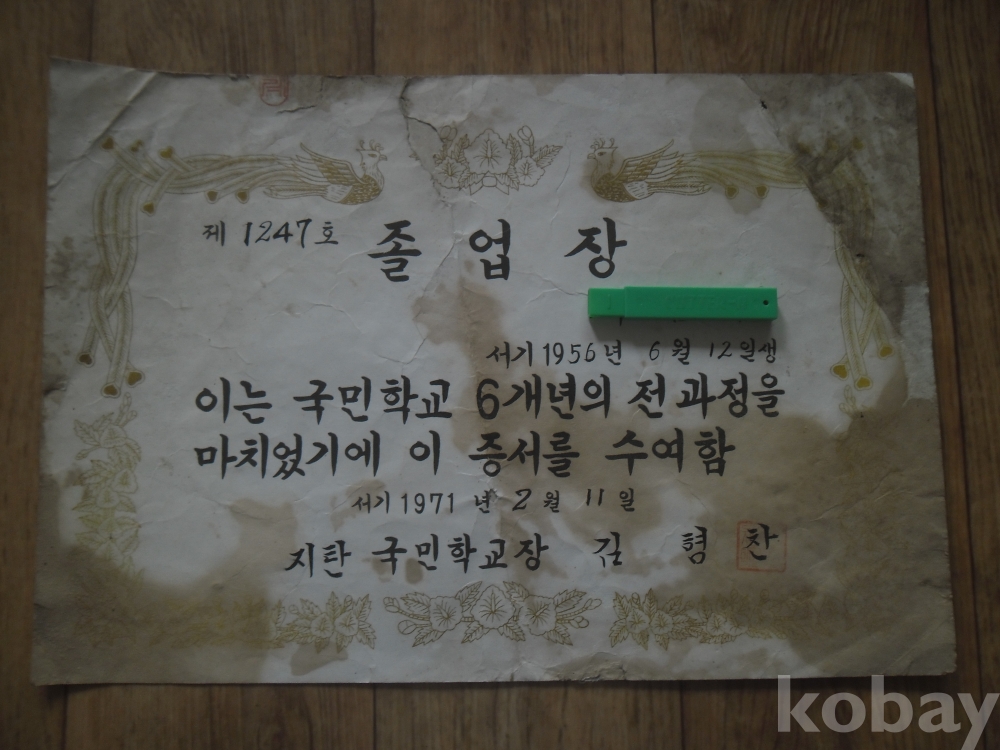 제 1247 호 졸 업 장
서기 1956 년 6 월 12 일생
이는 국민학교 6개년의 전 과정을
마치었기에 이 증서를 수여함
서기 1971 년 2 월 11 일
지탄 국민학교장 김 형 찬
kobay